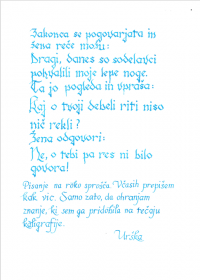 Zakonca se pogovarjata in
žena reče možu:
Dragi, danes so sodelavci
pohvalili moje lepe noge.
Ta jo pogleda in vpraša:
Kaj o tvoji debeli riti niso
nič rekli?
Žena odgovori:
Ne, o tebi pa res ni bilo
govora!
Pisanje na roko sprošča. Včasih prepišem
kak vic. Samo zato, da ohranjam
znanje, ki sem ga pridobila na tečaju
kaligrafije.
Urška